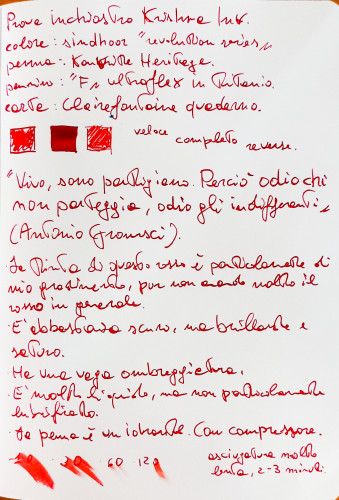 Prova inchiostro Krishna Ink.
colore: sindhoor "revolution series"
penna: Heritage.
pennino: "F" ultraflex in titanio.
carta: Clairefontaine quaderno.
veloce completo reverse.
"Vivo, sono partigiano. Perciò odio chi
non parteggia, odio gli indifferenti"
(Antonio Gramsci).
La tinta di questo rosso è particolarmente di
mio gradimento, pur non amando molto il
rosso in generale.
E' abbastanza scuro, ma brillante e
saturo.
Ha una vaga ombreggiatura.
E' molto liquido, ma non particolarmente
lubrificato.
La penna è un ibrido. Con compressore.
30 60 120
asciugatura molto
lenta, 2-3 minuti.